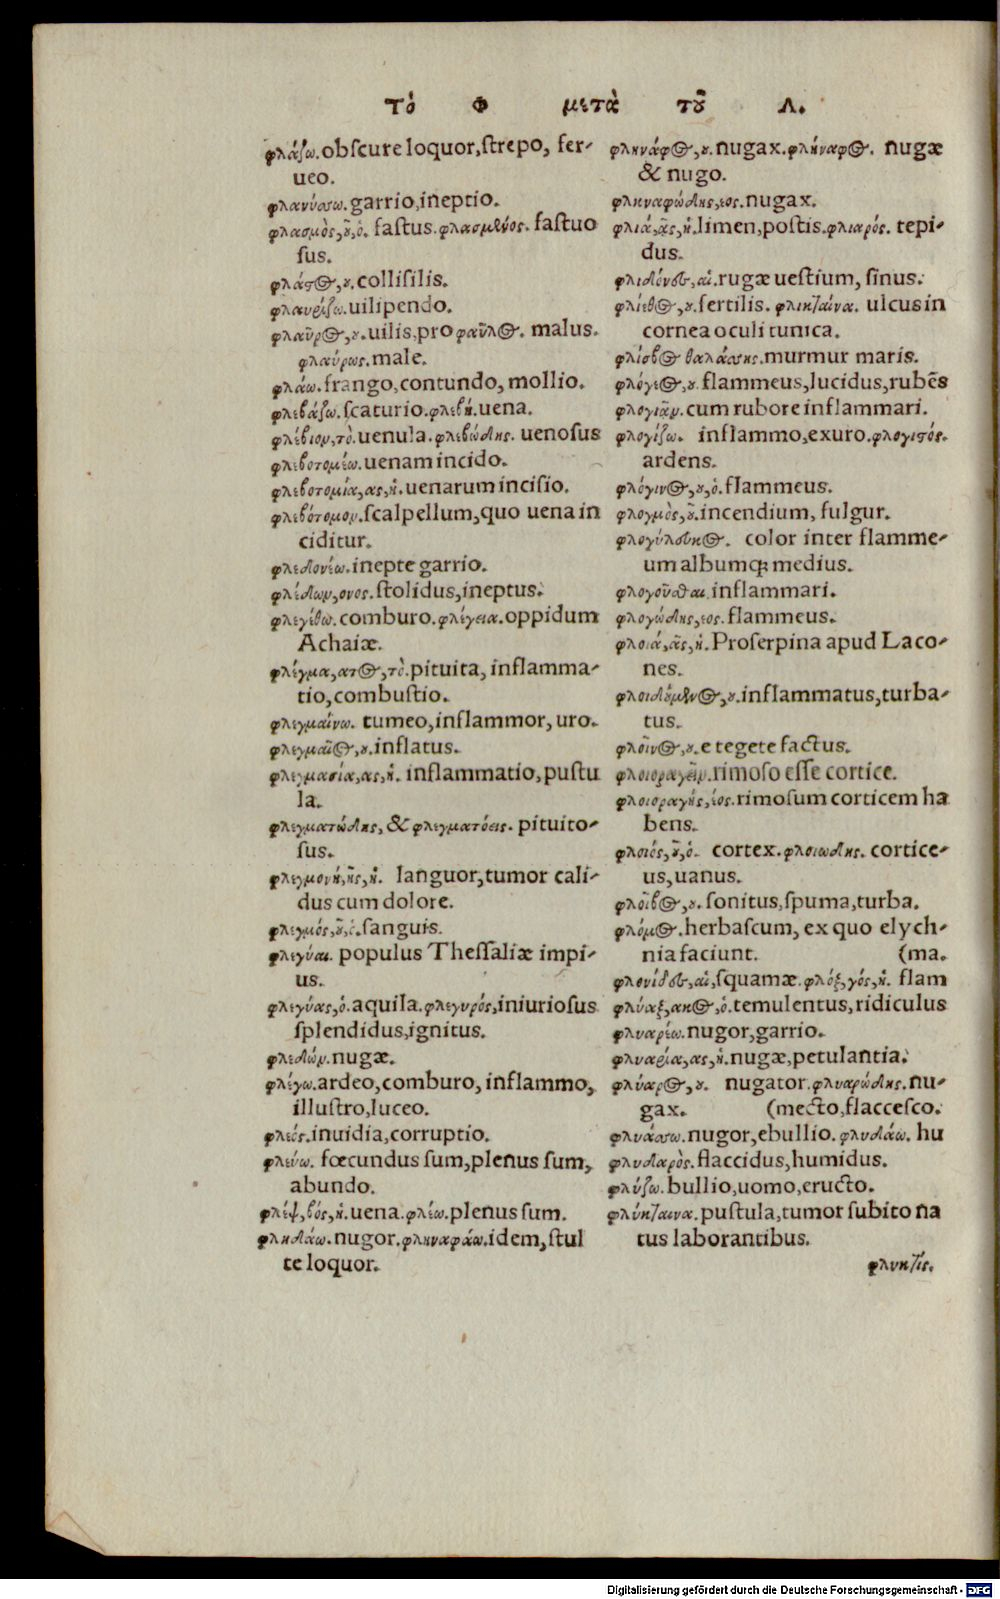 Τὸ Φ μετὰ τοῦ Λ.
φλάζω. obscure loquor, strepo, fer-
ueo.
φλανύσσω. garrio, ineptio.
φλασμὸς, οῦ, ὁ. fastus. φλασμῶνος. fastuo
sus.
φλάστος, ου. collisilis.
φλαυρίζω. uilipendo.
φλαῦρος, ου. uilis, pro φαῦλος. malus.
φλαύρως. male.
φλάω. frango, contundo, mollio.
φλεβάζω. scaturio. φλεβὴ. uena.
φλέβιον, τὸ. uenula. φλεβώδης. uenosus
φλεβοτομέω. uenam incido.
φλεβοτομία, ας, ἡ. uenarum incisio.
φλεβότομον. scalpellum, quo uena in
ciditur.
φλεδονέω. inepte garrio.
φλέδων, ονος. stolidus, ineptus.
φλεγέθω. comburo. φλέγεια. oppidum
Achaiæ.
φλέγμα, ατος, τὸ. pituita, inflamma-
tio, combustio.
φλεγμαίνω. tumeo, inflammor, uro.
φλεγμαῖος, ου. inflatus.
φλεγμασία, ας, ἡ. inflammatio, pustu
la.
φλεγματώδης, & φλεγματόεις. pituito-
sus.
φλεγμονὴ, ῆς, ἡ. languor, tumor cali-
dus cum dolore.
φλεγμός, οῦ, ὁ. sanguis.
φλεγύαι. populus Thessaliæ impi-
us.
φλεγύας, ὁ. aquila. φλεγυρός, iniuriosus
splendidus, ignitus.
φλεδών. nugæ.
φλέγω. ardeo, comburo, inflammo,
illustro, luceo.
φλεός. inuidia, corruptio.
φλεύω. fœcundus sum, plenus sum,
abundo.
φλέψ, βός, ἡ. uena. φλέω. plenus sum.
φληδάω. nugor. φληναφάω. idem, stul
te loquor.
φληνάφος, ου. nugax. φλήναφος. nugæ
& nugo.
φληναφώδης, εος. nugax.
φλιά, ᾶς, ἡ. limen, postis. φλιαρός. tepi-
dus.
φλιδόνες, αἱ. rugæ uestium, sinus.
φλίεθος, ου. fertilis. φλικταίνα. ulcus in
cornea oculi tunica.
φλίσβος θαλάσσης. murmur maris.
φλόγεος, ου. flammeus, lucidus, rubēs
φλογιᾶν. cum rubore inflammari.
φλογίζω. inflammo, exuro. φλογιστός.
ardens.
φλόγινος, ου, ὁ. flammeus.
φλογμὸς, οῦ. incendium, fulgur.
color inter flamme-
um albumq; medius.
φλογοῦσθαι. inflammari.
φλογώδης, εος. flammeus.
φλοιά, ᾶς, ἡ. Proserpina apud Laco-
nes.
φλοιδούμενος, ου. inflammatus, turba-
tus.
φλοῖνος, ου. e tegete factus.
φλοιοραγεῖν. rimoso esse cortice.
φλοιοραγής, έος. rimosum corticem ha
bens.
φλοιός, οῦ, ὁ. cortex. φλοιωδης. cortice-
us, uanus.
φλοῖβος, ου. sonitus, spuma, turba.
φλόμος. herbascum, ex quo elych-
nia faciunt. (ma.
φλονίδες, αἱ, squamæ. φλόξ, γός, ἡ. flam
φλύαξ, ακος, ὁ. temulentus, ridiculus
φλυαρέω. nugor, garrio.
φλυαρία, ας, ἡ. nugæ, petulantia.
φλύαρος, ου. nugator. φλυαρώδης. nu-
gax. (mecto, flaccesco.
φλυάσσω. nugor, ebullio. φλυδάω. hu
φλυδαρὸς. flaccidus, humidus.
φλύζω. bullio, uomo, eructo.
φλύκταινα. pustula, tumor subito na
tus laborantibus.
φλυκτίς.
Digitalisierung gefördert durch die Deutsche Forschungsgemeinschaft - DFG